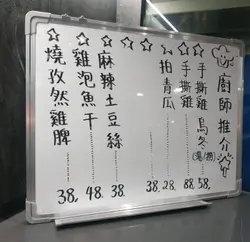 廚師推介
手撕雞烏冬(湯/撈) 58.
手撕雞 88.
拍青瓜 28.
38.
麻辣土豆絲 38.
雞泡魚干 48.
燒孜然雞脾 38.